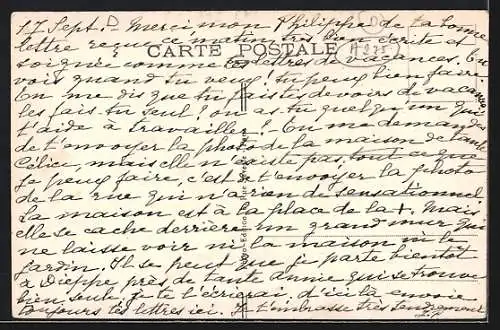 17 Sept. - Merci mon Philippe de ta bonne
lettre reçue ce matin, très bien écrite et
CARTE POSTALE
A 275
soignée comme les lettres de vacances. Tu
vois quand tu veux! tu peux bien faire.
Tu me dis que tu fais tes devoirs de vacances
les fais-tu seul? ou as-tu quelqu'un qui
t'aide à travailler! Tu me demandes
de t'envoyer la photo de la maison de tante
Célice, mais elle n'existe pas, tout ce que
je peux faire, c'est de t'envoyer la photo
de la rue qui n'a rien de sensationnel
La maison est à la place de la +. Mais
elle se cache derrière un grand mur qui
ne laisse voir ni la maison ni le
jardin. Il se peut que je parte bientôt
à Dieppe près de tante Annie qui se trouve
bien seule je te l'écrirai, d'ici là envoie
toujours tes lettres ici. Je t'embrasse très tendrement